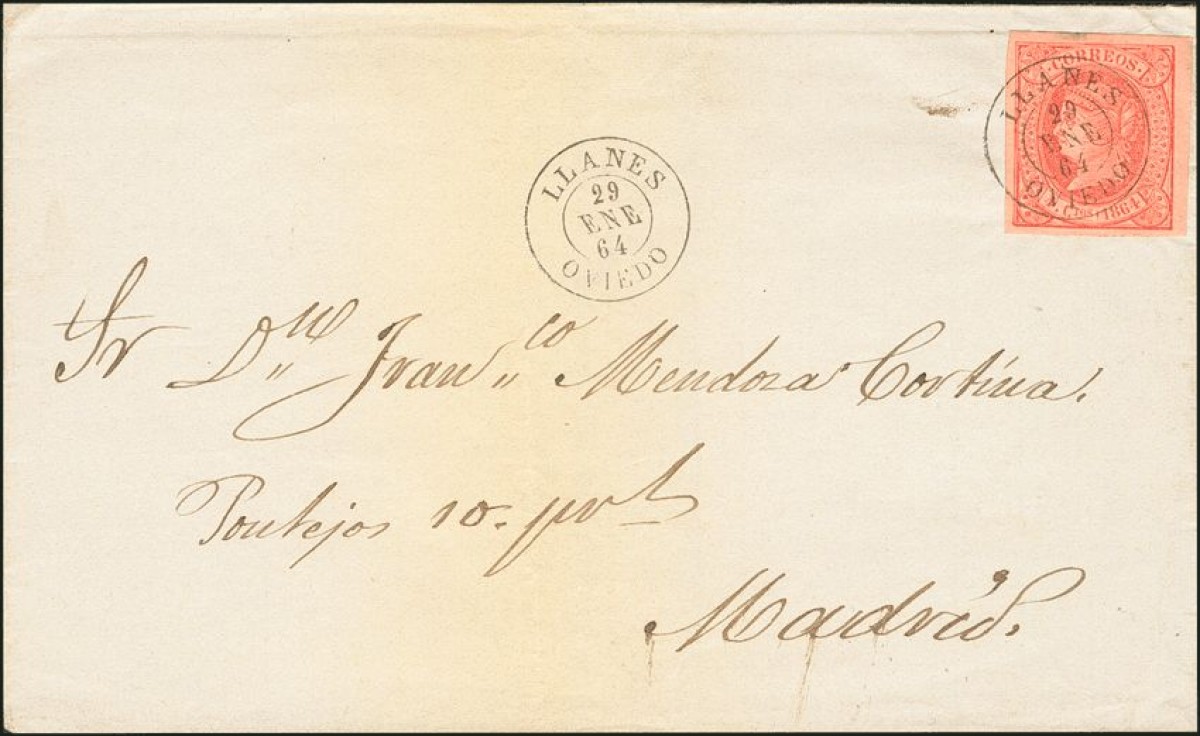 CORREOS
LLANES
29
ENE
64
OVIEDO
CTOS 1864
LLANES
29
ENE
64
OVIEDO
Sr D.n Fran.co Mendoza Cortina.
Pontejos 10. pral
Madrid.